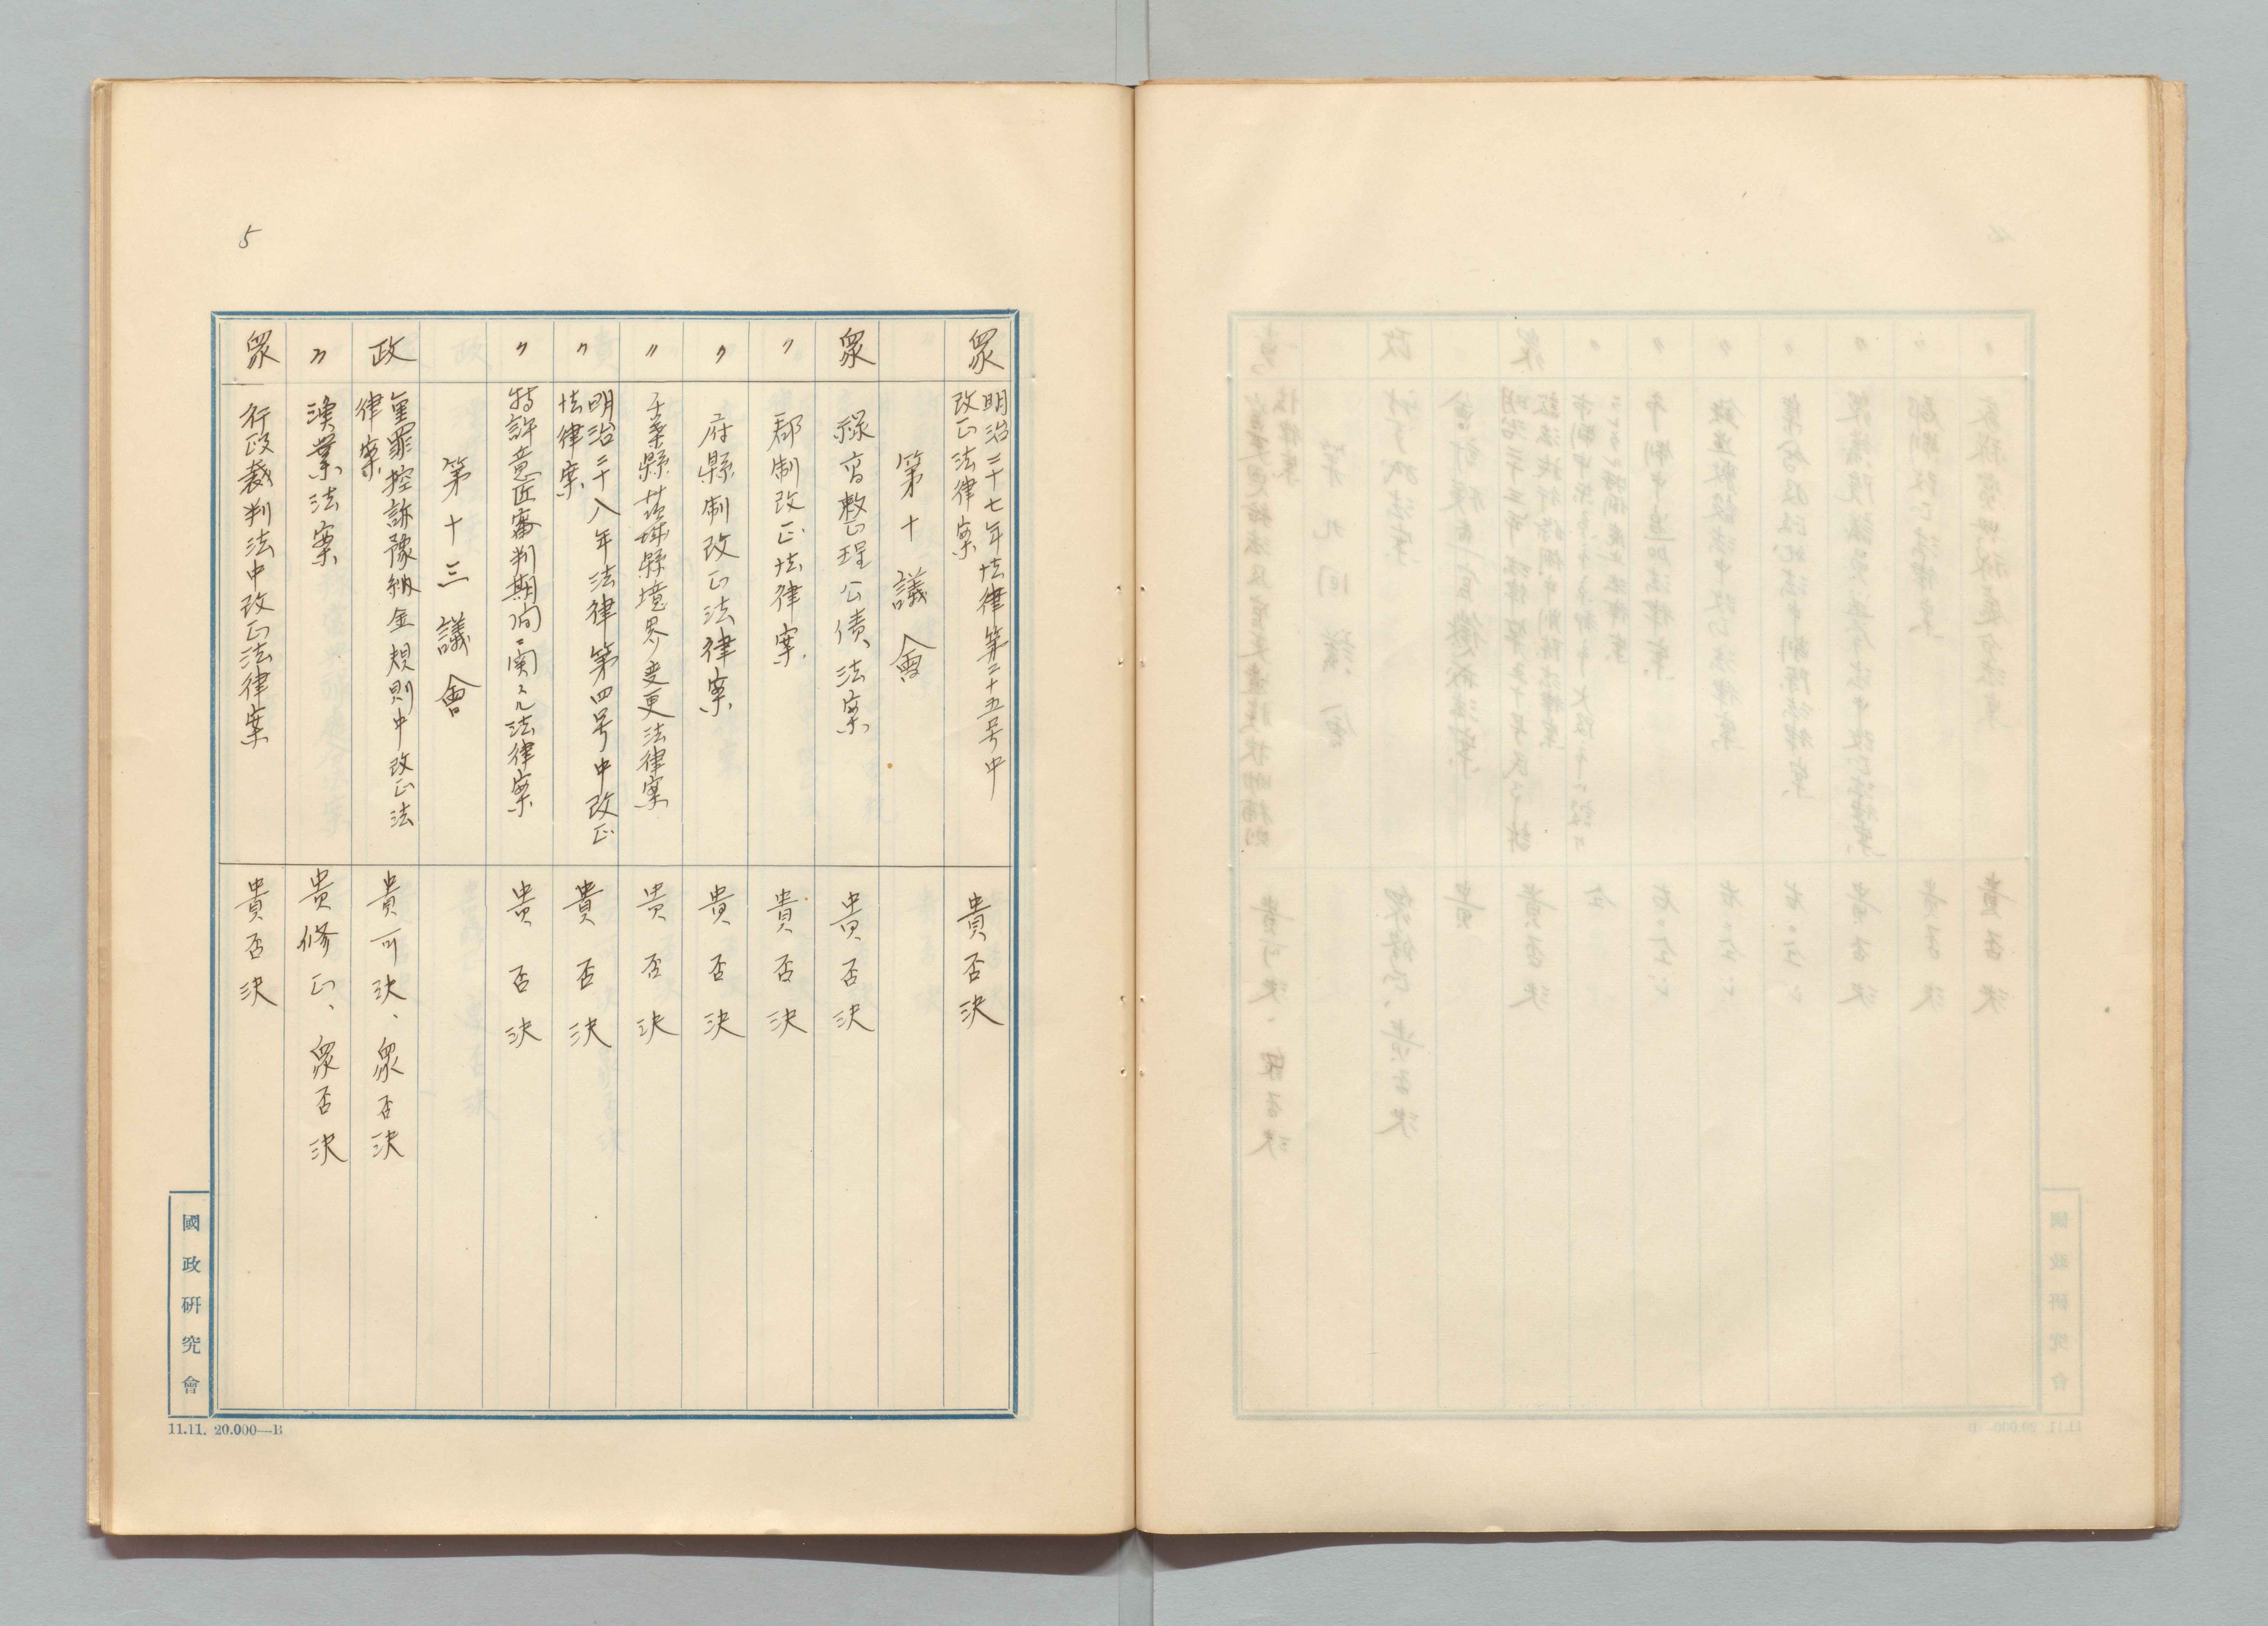 5
衆
明治二十七年法律第二十五号中
改正法律案
貴否決
第十議會
衆
祿高整理公債法案
貴否決
〃
郡制改正法律案
貴否決
〃
府縣制改正法律案
貴否決
〃
千葉縣茨城縣境界変更法律案
貴否決
〃
明治二十八年法律第四号中改正
法律案
貴否決
〃
特許意匠審判期間ニ関スル法律案
貴否決
第十三議會
政
重罪控訴豫納金規則中改正法
律案
貴可決、衆否決
〃
漁業法案
貴修正、衆否決
衆
行政裁判法中改正法律案
貴否決
國政研究會
11.11. 20.000—B